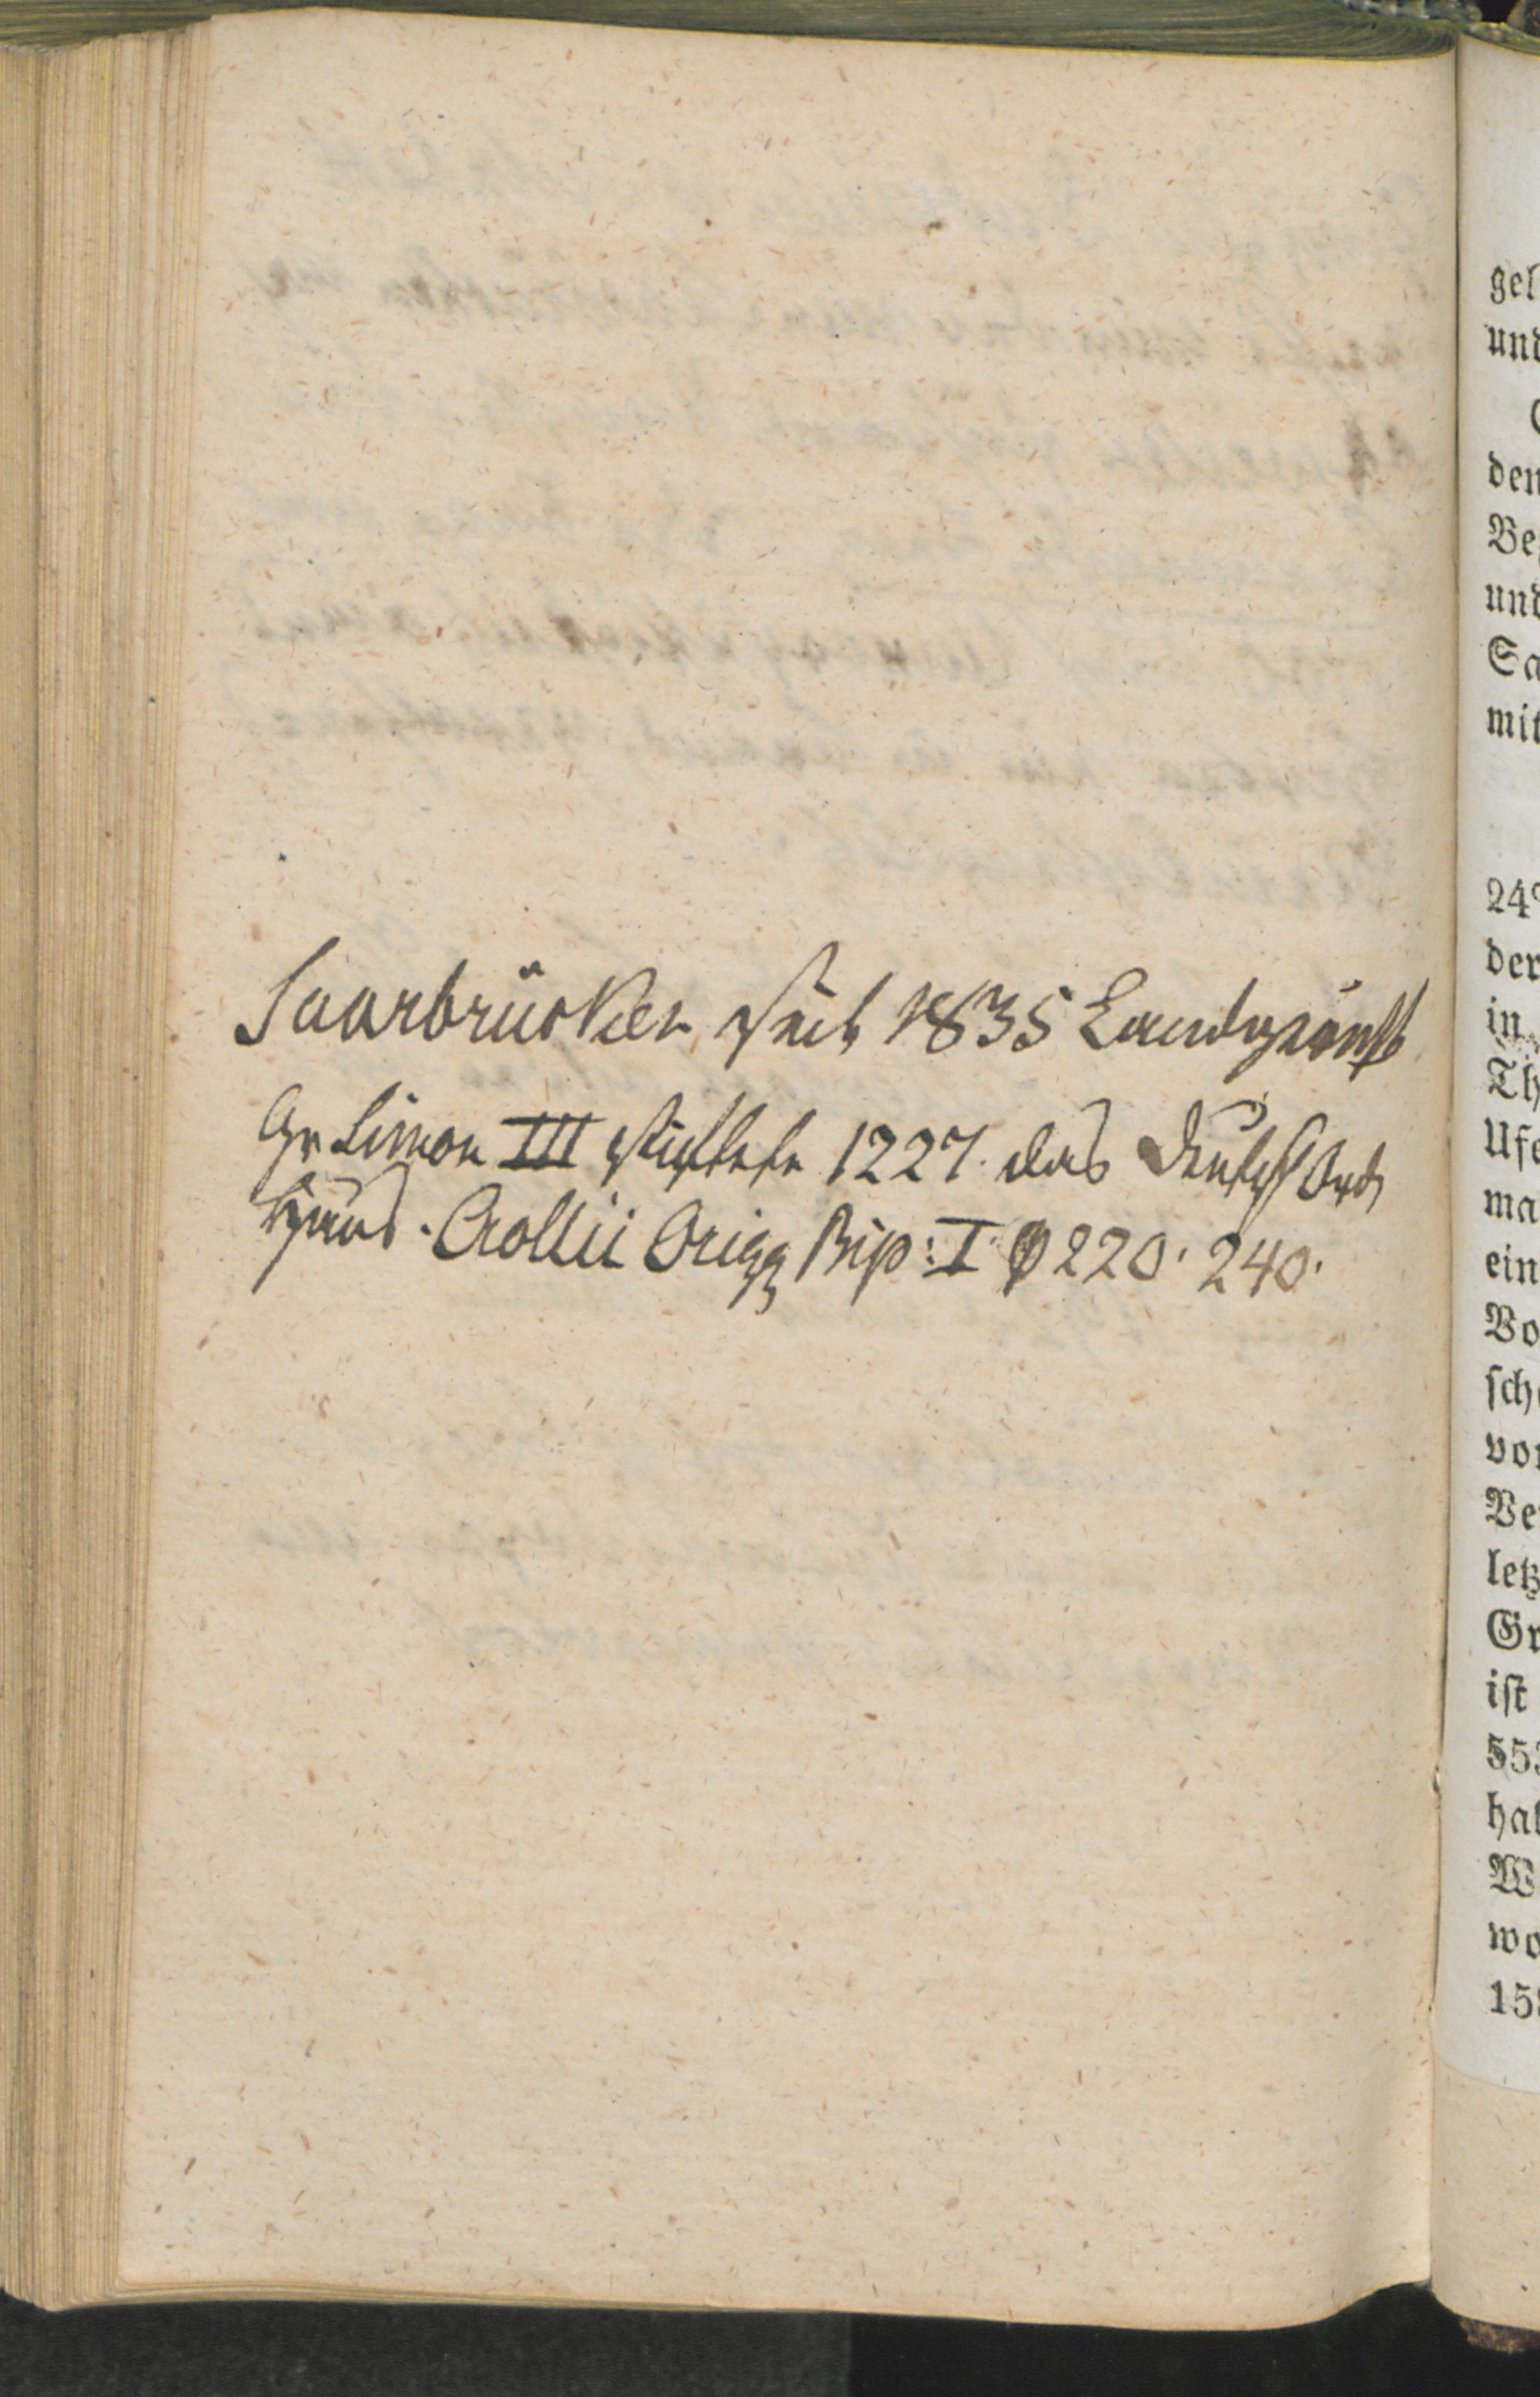 Saarbrücken seit 1835 Landgericht
Gr Simon III stiftete 1227. das Deutsch Ord
Haus. Crollii Origg Bip: I p 220. 240.
gel
und
den
Be
und
Sa
mit
24
der
in
Th
Ufe
ma
ein
Vo
sch
von
Ve
letz
Gr
ist
55
hal
W
wo
15